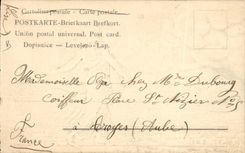 Cartolina postale - Carte postale
POSTKARTE-Brietkaart Brefkort.
Unión postal universal. Post card.
Dopisnice - Levelező-Lap.
Mademoiselle chez Mr Dubourg
Coiffeur Place St Nizier
à Troyes (Aube)
France